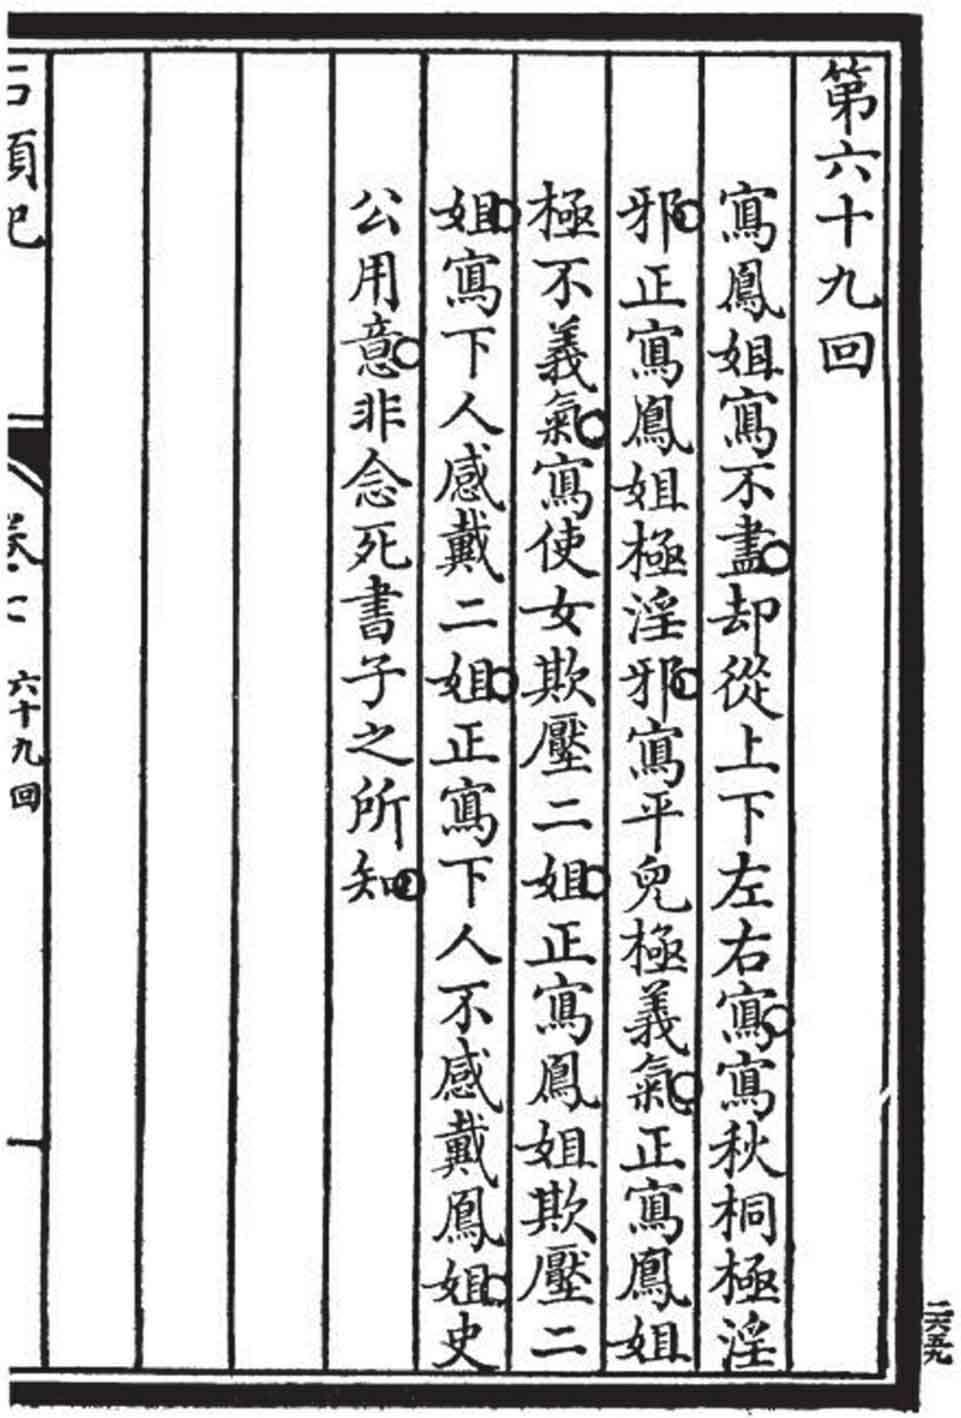 第六十九回
寫鳳姐寫不盡却從上下左右寫寫秋桐極淫
邪正寫鳳姐極淫邪寫平兒極義氣正寫鳳姐
極不義氣寫使女欺壓二姐正寫鳳姐欺壓二
姐寫下人感戴二姐正寫下人不感戴鳳姐史
公用意非念死書子之所知
石頭記
卷七
六十九回
二六五九